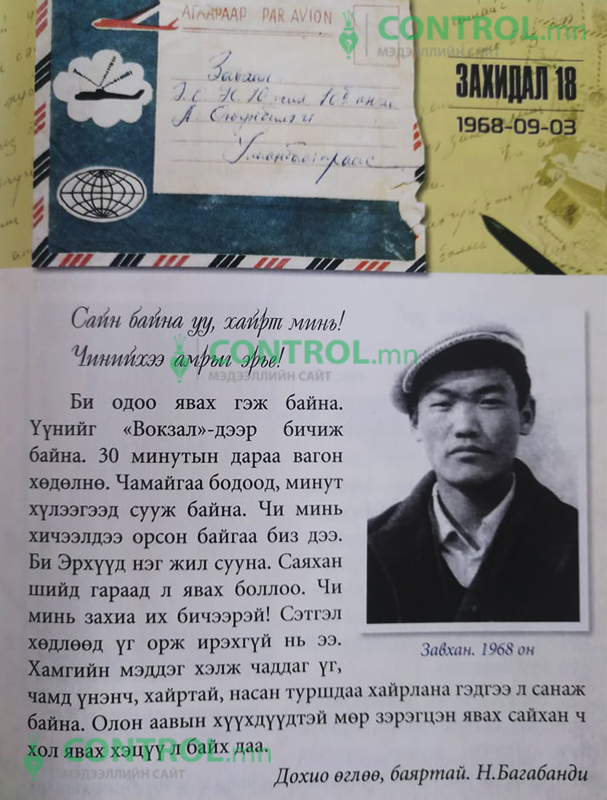 АГААРААР PAR AVION
CONTROL.mn
МЭДЭЭЛЛИЙН САЙТ
Завхан
Улаанбаатараас
ЗАХИДАЛ 18
1968-09-03
Сайн байна уу, хайрт минь!
Чинийхээ амрыг эрье!
CONTROL.mn
МЭДЭЭЛЛИЙН САЙТ
Би одоо явах гэж байна.
Үүнийг «Вокзал»-дээр бичиж
байна. 30 минутын дараа вагон
хөдөлнө. Чамайгаа бодоод, минут
хүлээгээд сууж байна. Чи минь
хичээлдээ орсон байгаа биз дээ.
Би Эрхүүд нэг жил сууна. Саяхан
шийд гараад л явах боллоо. Чи
минь захиа их бичээрэй! Сэтгэл
хөдлөөд үг орж ирэхгүй нь ээ.
Хамгийн мэддэг хэлж чаддаг үг,
чамд үнэнч, хайртай, насан туршдаа хайрлана гэдгээ л санаж
байна. Олон аавын хүүхдүүдтэй мөр зэрэгцэн явах сайхан ч
хол явах хэцүү л байх даа.
Завхан. 1968 он
CONTROL.mn
МЭДЭЭЛЛИЙН САЙТ
Дохио өглөө, баяртай. Н.Багабанди